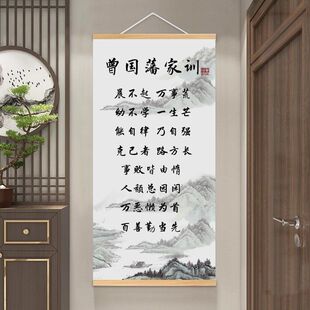 曾国藩家训
晨不起 万事荒
幼不学 一生芒
能自律 乃自强
克己者 路方长
事败皆由惰
人颓总因闲
万恶懒为首
百善勤当先